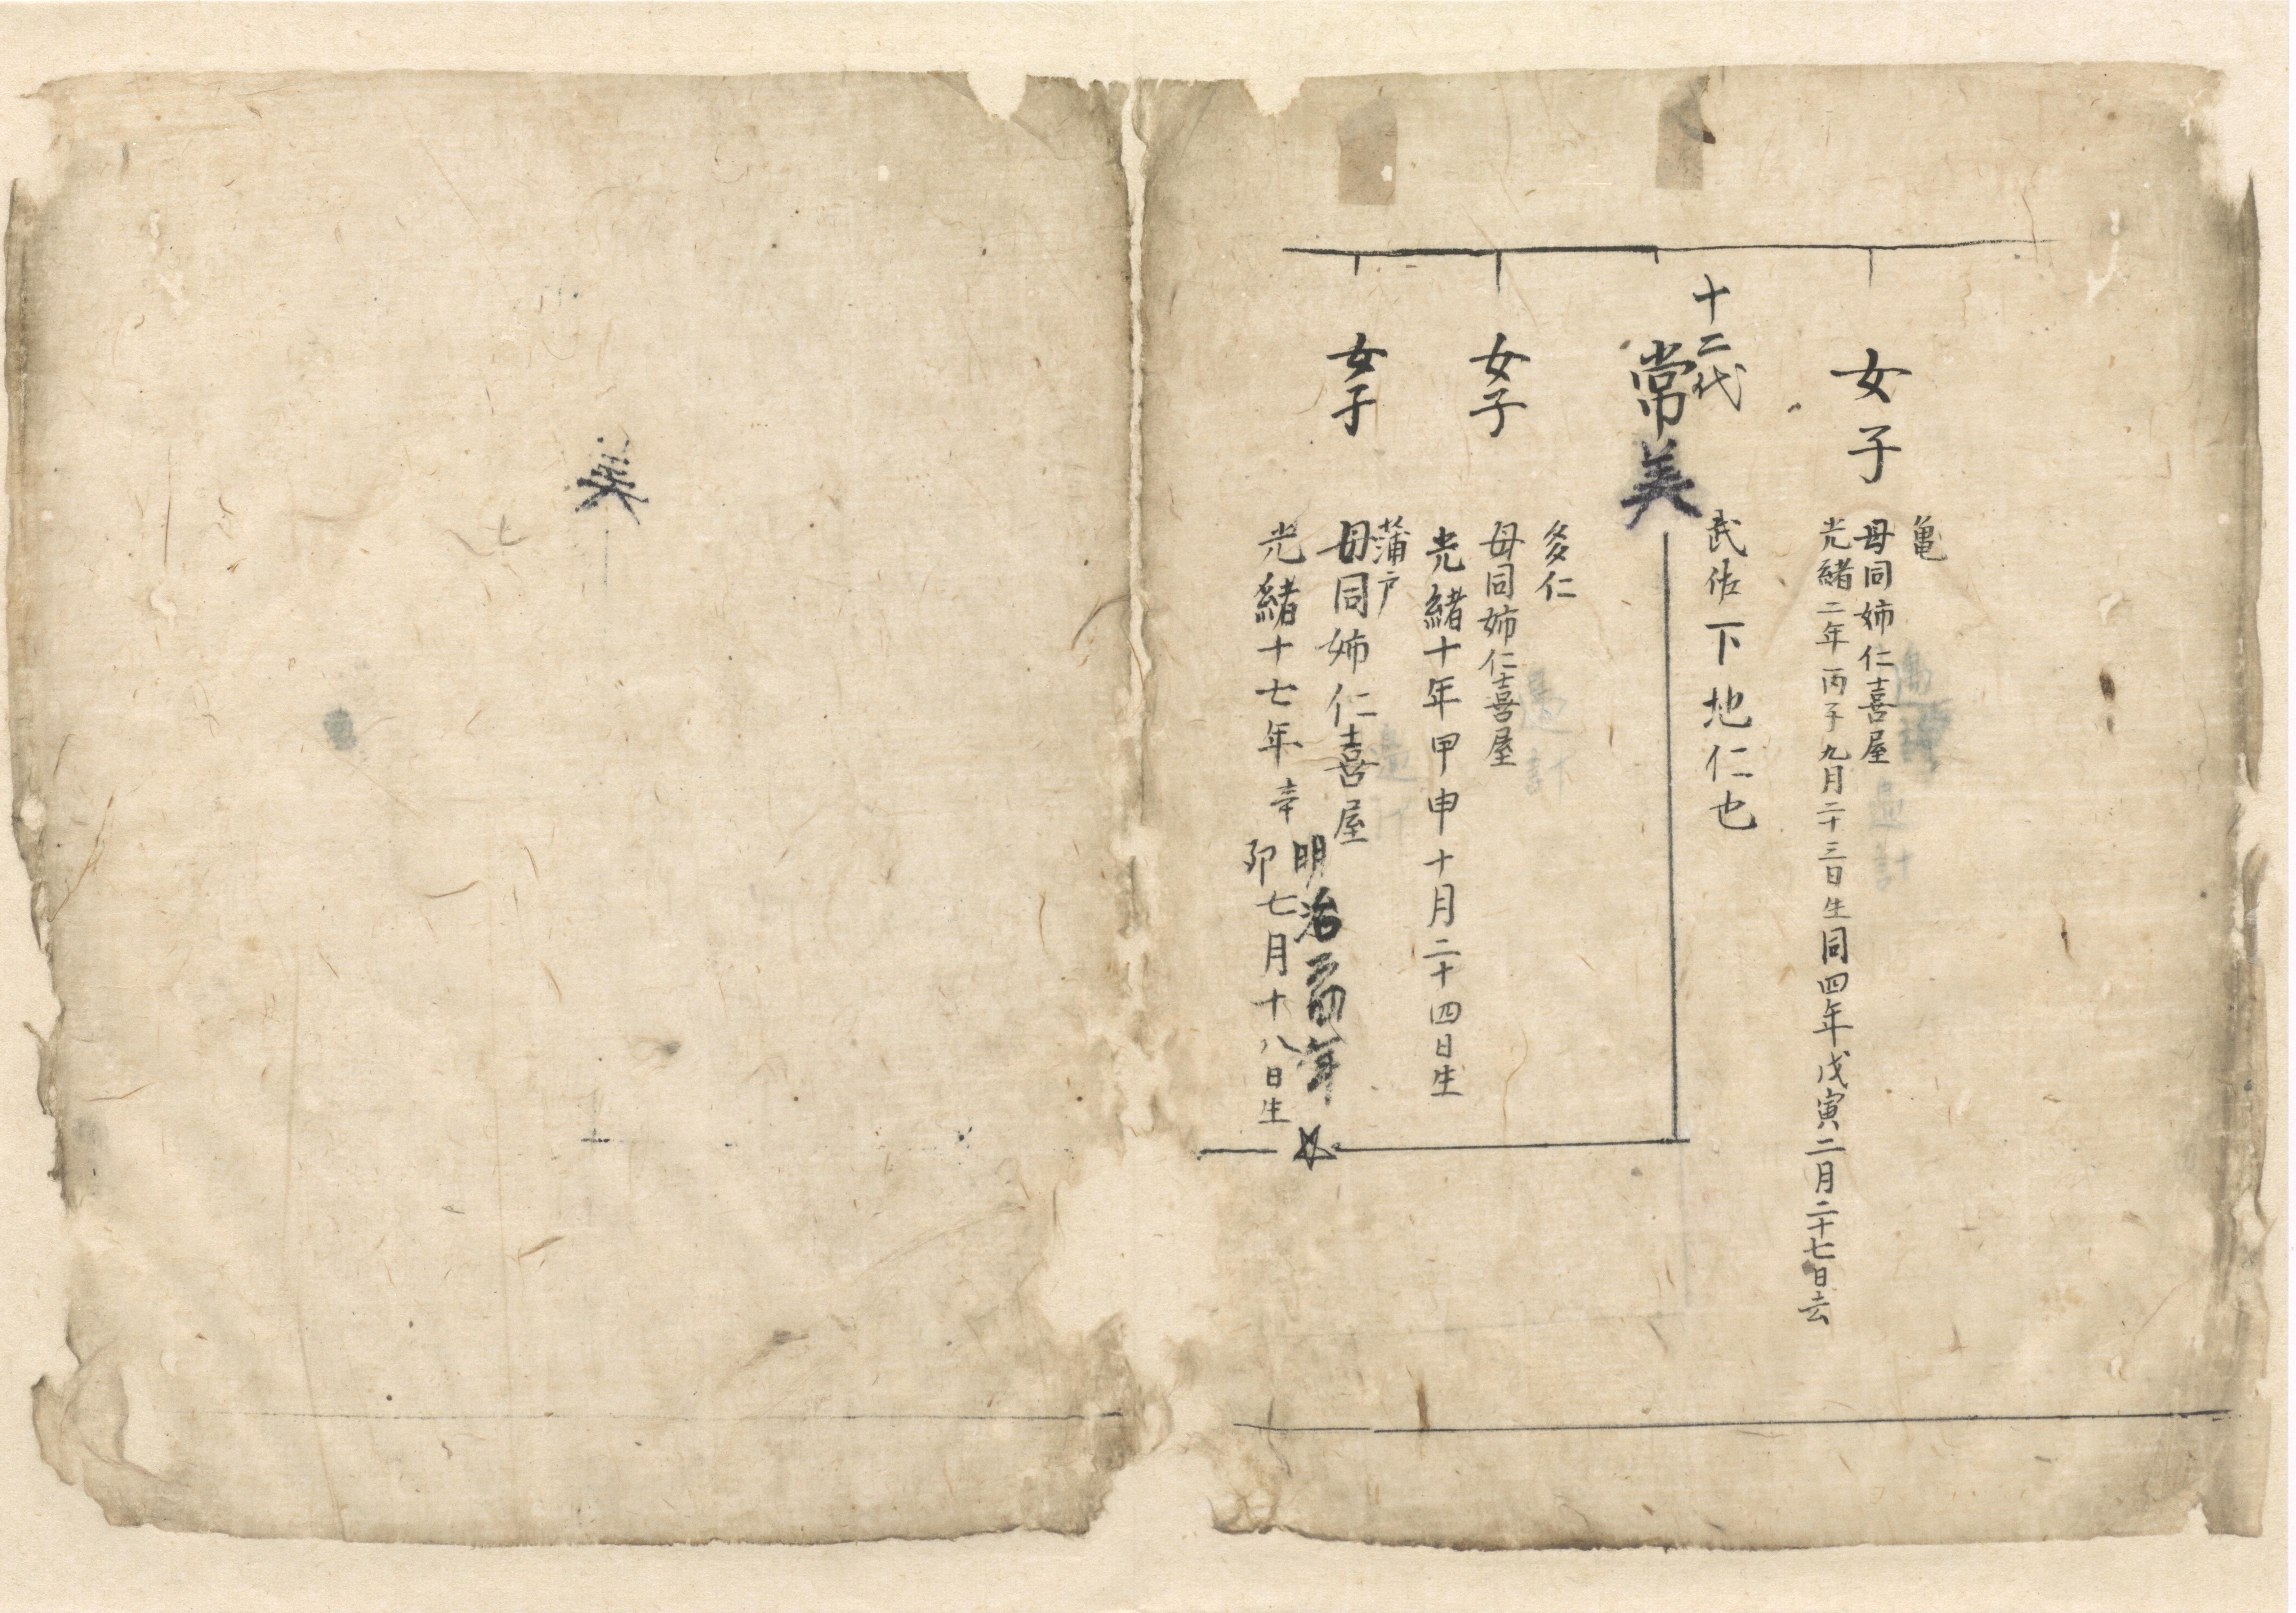 女子
亀
母同姉仁喜屋
光緒二年丙子九月二十三日生同四年戊寅二月二十七日去
十二代
常美
武佐下地仁也
女子
多仁
母同姉仁喜屋
光緒十年甲申十月二十四日生
女子
蒲戸
母同姉仁喜屋
光緒十七年辛卯七月十八日生
明治
年
美